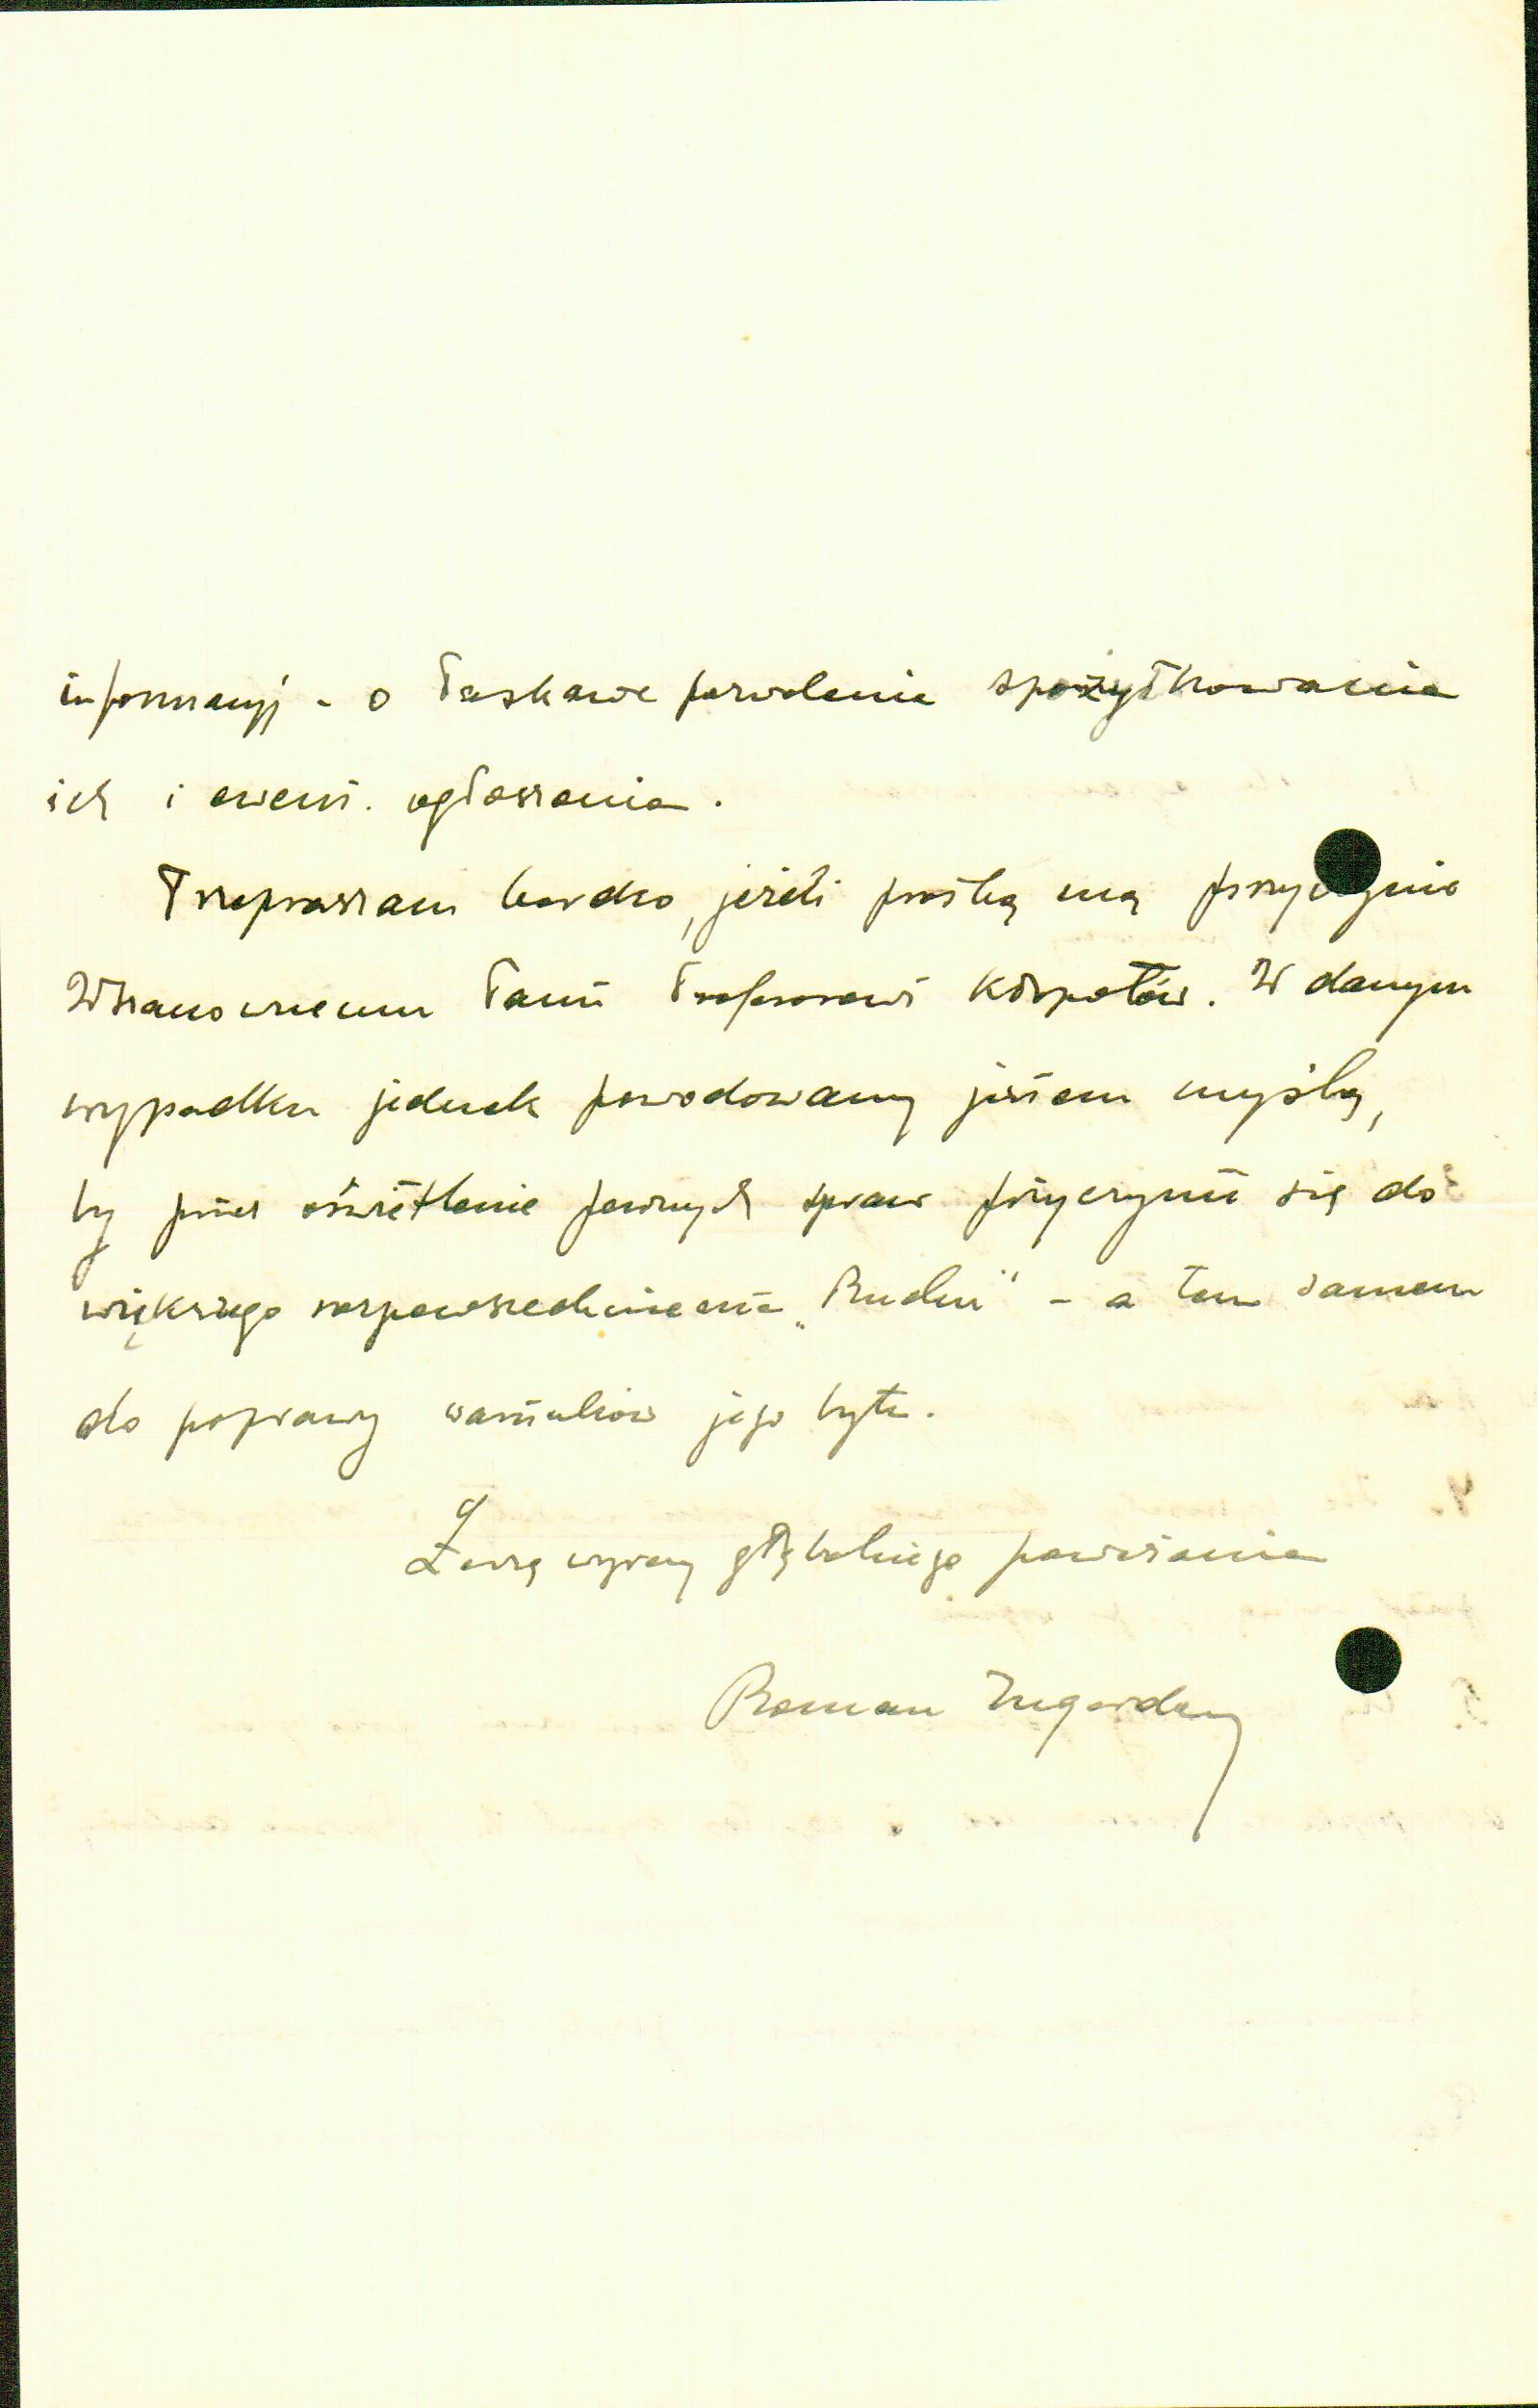 informacyj - o łaskawe pozwolenie spożytkowania
ich i ewent. ogłoszenia.
Przepraszam bardzo, jeżeli prośbą mą przyczynię
WSzanownemu Panu Profesorowi kłopotów. W danym
wypadku jednak powodowany jestem myślą,
by przez oświetlenie pewnych spraw przyczynić się do
większego rozpowszechnienia „Ruchu" - a tem samem
do poprawy warunków jego bytu.
Łączę wyrazy głębokiego poważania
Roman Ingarden